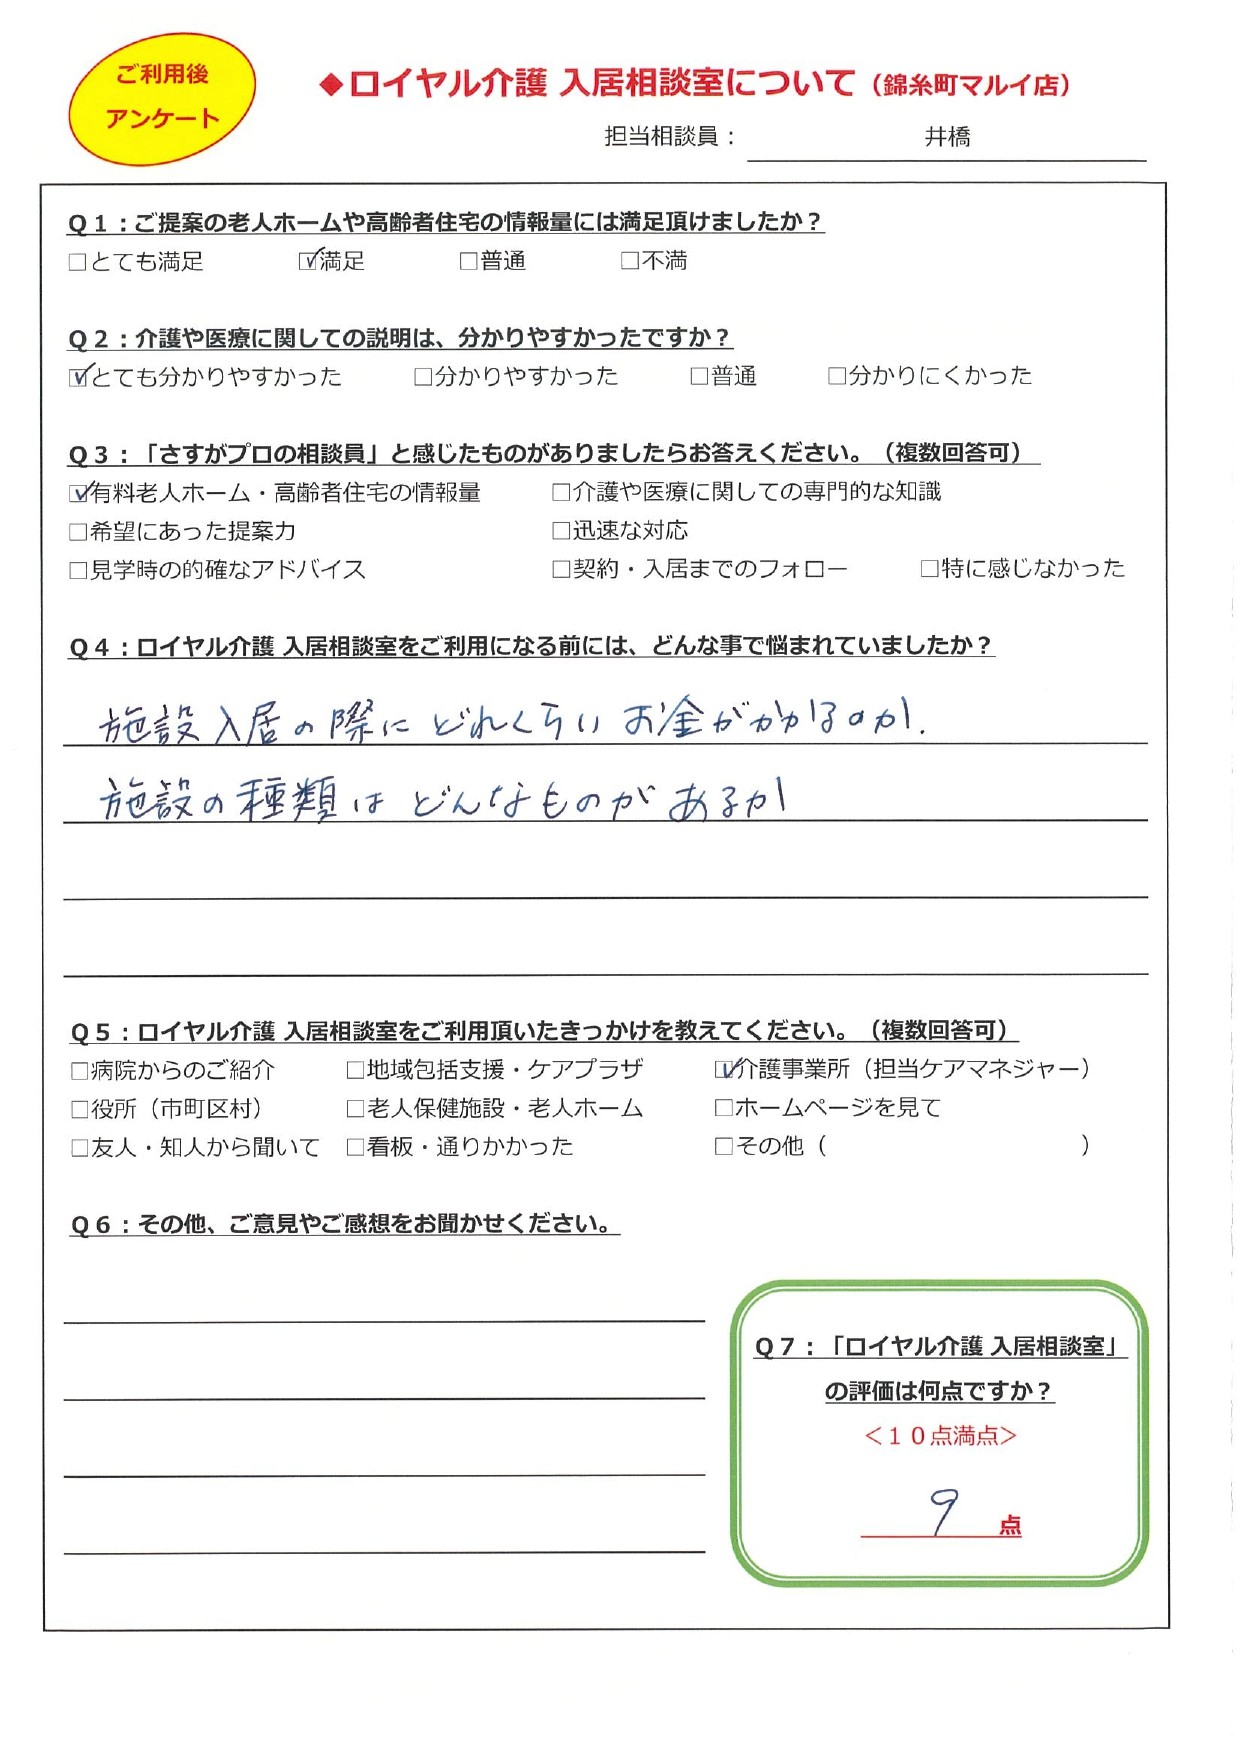 ご利用後
アンケート
◆ロイヤル介護 入居相談室について（錦糸町マルイ店）
担当相談員： 井橋
Q１：ご提案の老人ホームや高齢者住宅の情報量には満足頂けましたか？
□とても満足 ☑満足 □普通 □不満
Q２：介護や医療に関しての説明は、分かりやすかったですか？
☑とても分かりやすかった □分かりやすかった □普通 □分かりにくかった
Q３：「さすがプロの相談員」と感じたものがありましたらお答えください。（複数回答可）
☑有料老人ホーム・高齢者住宅の情報量 □介護や医療に関しての専門的な知識
□希望にあった提案力 □迅速な対応
□見学時の的確なアドバイス □契約・入居までのフォロー □特に感じなかった
Q４：ロイヤル介護 入居相談室をご利用になる前には、どんな事で悩まれていましたか？
施設入居の際にどれくらいお金がかかるのか.
施設の種類はどんなものがあるか
Q５：ロイヤル介護 入居相談室をご利用頂いたきっかけを教えてください。（複数回答可）
□病院からのご紹介 □地域包括支援・ケアプラザ ☑介護事業所（担当ケアマネジャー）
□役所（市町区村） □老人保健施設・老人ホーム □ホームページを見て
□友人・知人から聞いて □看板・通りかかった □その他（ ）
Q６：その他、ご意見やご感想をお聞かせください。
Q７：「ロイヤル介護 入居相談室」
の評価は何点ですか？
＜１０点満点＞
9 点